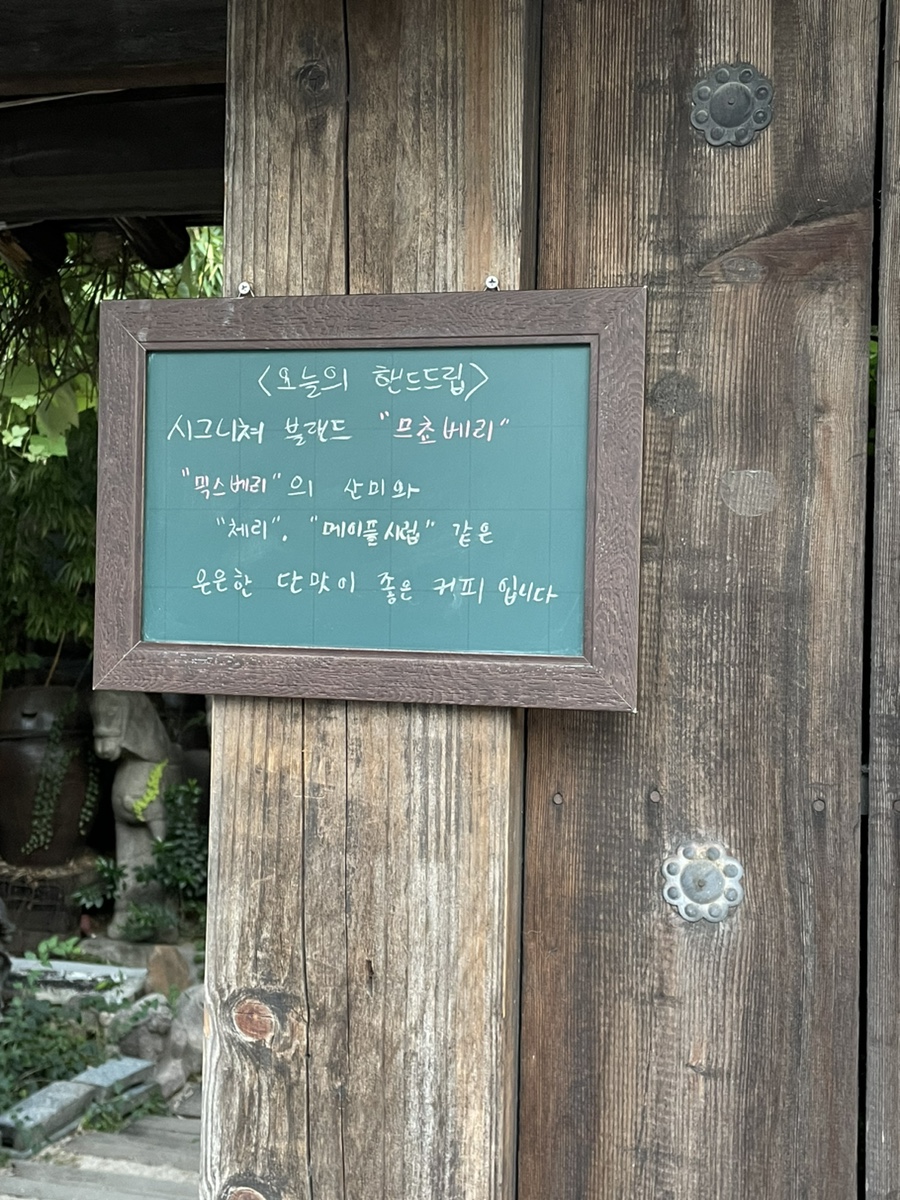 <오늘의 핸드드립>
시그니쳐 블랜드 "므쵸베리"
"믹스베리"의 산미와
"체리", "메이플시럽" 같은
은은한 단맛이 좋은 커피 입니다